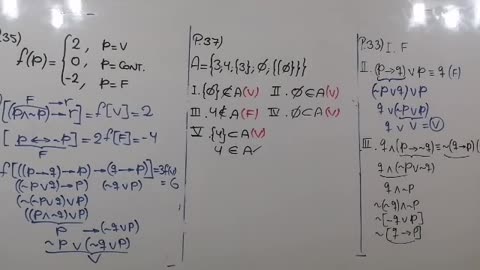 35)
f(p) = { 2, p=V
0, p=CONT.
-2, p=F
[(p∧~p) → r] = f[V] = 2
F
[ p ↔ ~p ] = 2f[F] = -4
F
f[((p→q)→p)→(q→p)] = 3f(V)
((~p∨q)→p) (~q∨p) = 6
(~(~p∨q)∨p)
((p∧~q)∨p)
p → (~q∨p)
~p ∨ (~q∨p)
V
P.37)
A={3,4,{3};∅,{{∅}}}
I. {∅}∉A (V) II. ∅⊂A (V)
III. 4∉A (F) IV. ∅⊂A (V)
V. {4}⊂A (V)
4 ∈ A ✓
P.33) I. F
II. (p→q)∨p ≡ q (F)
(~p∨q)∨p
q∨(~p∨p)
q ∨ V = V
III. q∧(p→~q) ≡ ~(q→p)
q∧(~p∨~q)
q∧~p
~(~q)∧~p
~[~q∨p]
~[q→p]